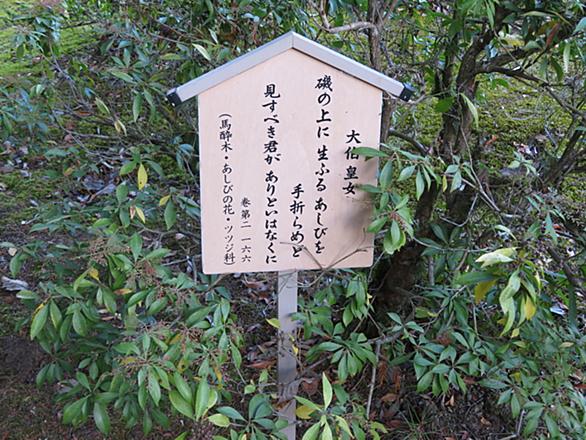 大伯皇女
磯の上に 生ふる あしびを
手折らめど
見すべき君が ありといはなくに
巻第二 一六六
(馬酔木・あしびの花・ツツジ科)